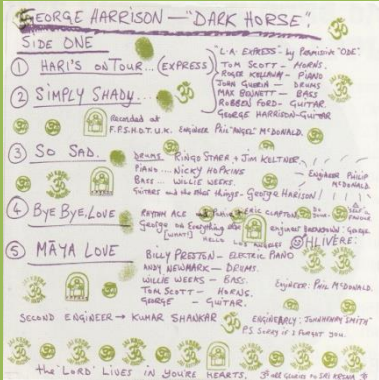 GEORGE HARRISON — "DARK HORSE".
SIDE ONE
① HARI'S ON TOUR... (EXPRESS)
L·A· EXPRESS - by Permission "ODE".
TOM SCOTT - HORNS.
ROGER KELLAWAY - PIANO
JOHN GUERIN - DRUMS
MAX BENNETT - BASS
ROBBEN FORD - GUITAR.
GEORGE HARRISON - GUITAR
② SIMPLY SHADY...
Recorded at
F.P.S.H.O.T. U.K. Engineer Phil "ANGEL" McDONALD.
③ SO SAD.
DRUMS RINGO STARR + JIM KELTNER.
PIANO .... NICKY HOPKINS
BASS ... WILLIE WEEKS.
GUITARS and the other things - GEORGE HARISON!
ENGINEER PHILIP
McDONALD.
④ BYE BYE, LOVE
RHYTHM ACE ERIC CLAPTON
George on Everything else
[WHAT!]
HELLO LOS ANGELES
⑤ MĀYA LOVE
OHLIVERE:
BILLY PRESTON - ELECTRIC PIANO
ANDY NEWMARK - DRUMS.
WILLIE WEEKS - BASS.
TOM SCOTT - HORNS.
GEORGE - GUITAR.
ENGINEER: PHIL McDONALD.
SECOND ENGINEER → KUMAR SHANKAR
ENGINEARLY: JOHNHENRY "SMITH"
P.S. SORRY if I FORGOT YOU.
the 'LORD' LIVES IN YOU'RE HEARTS. all GLORIES TO SRI KRSNA